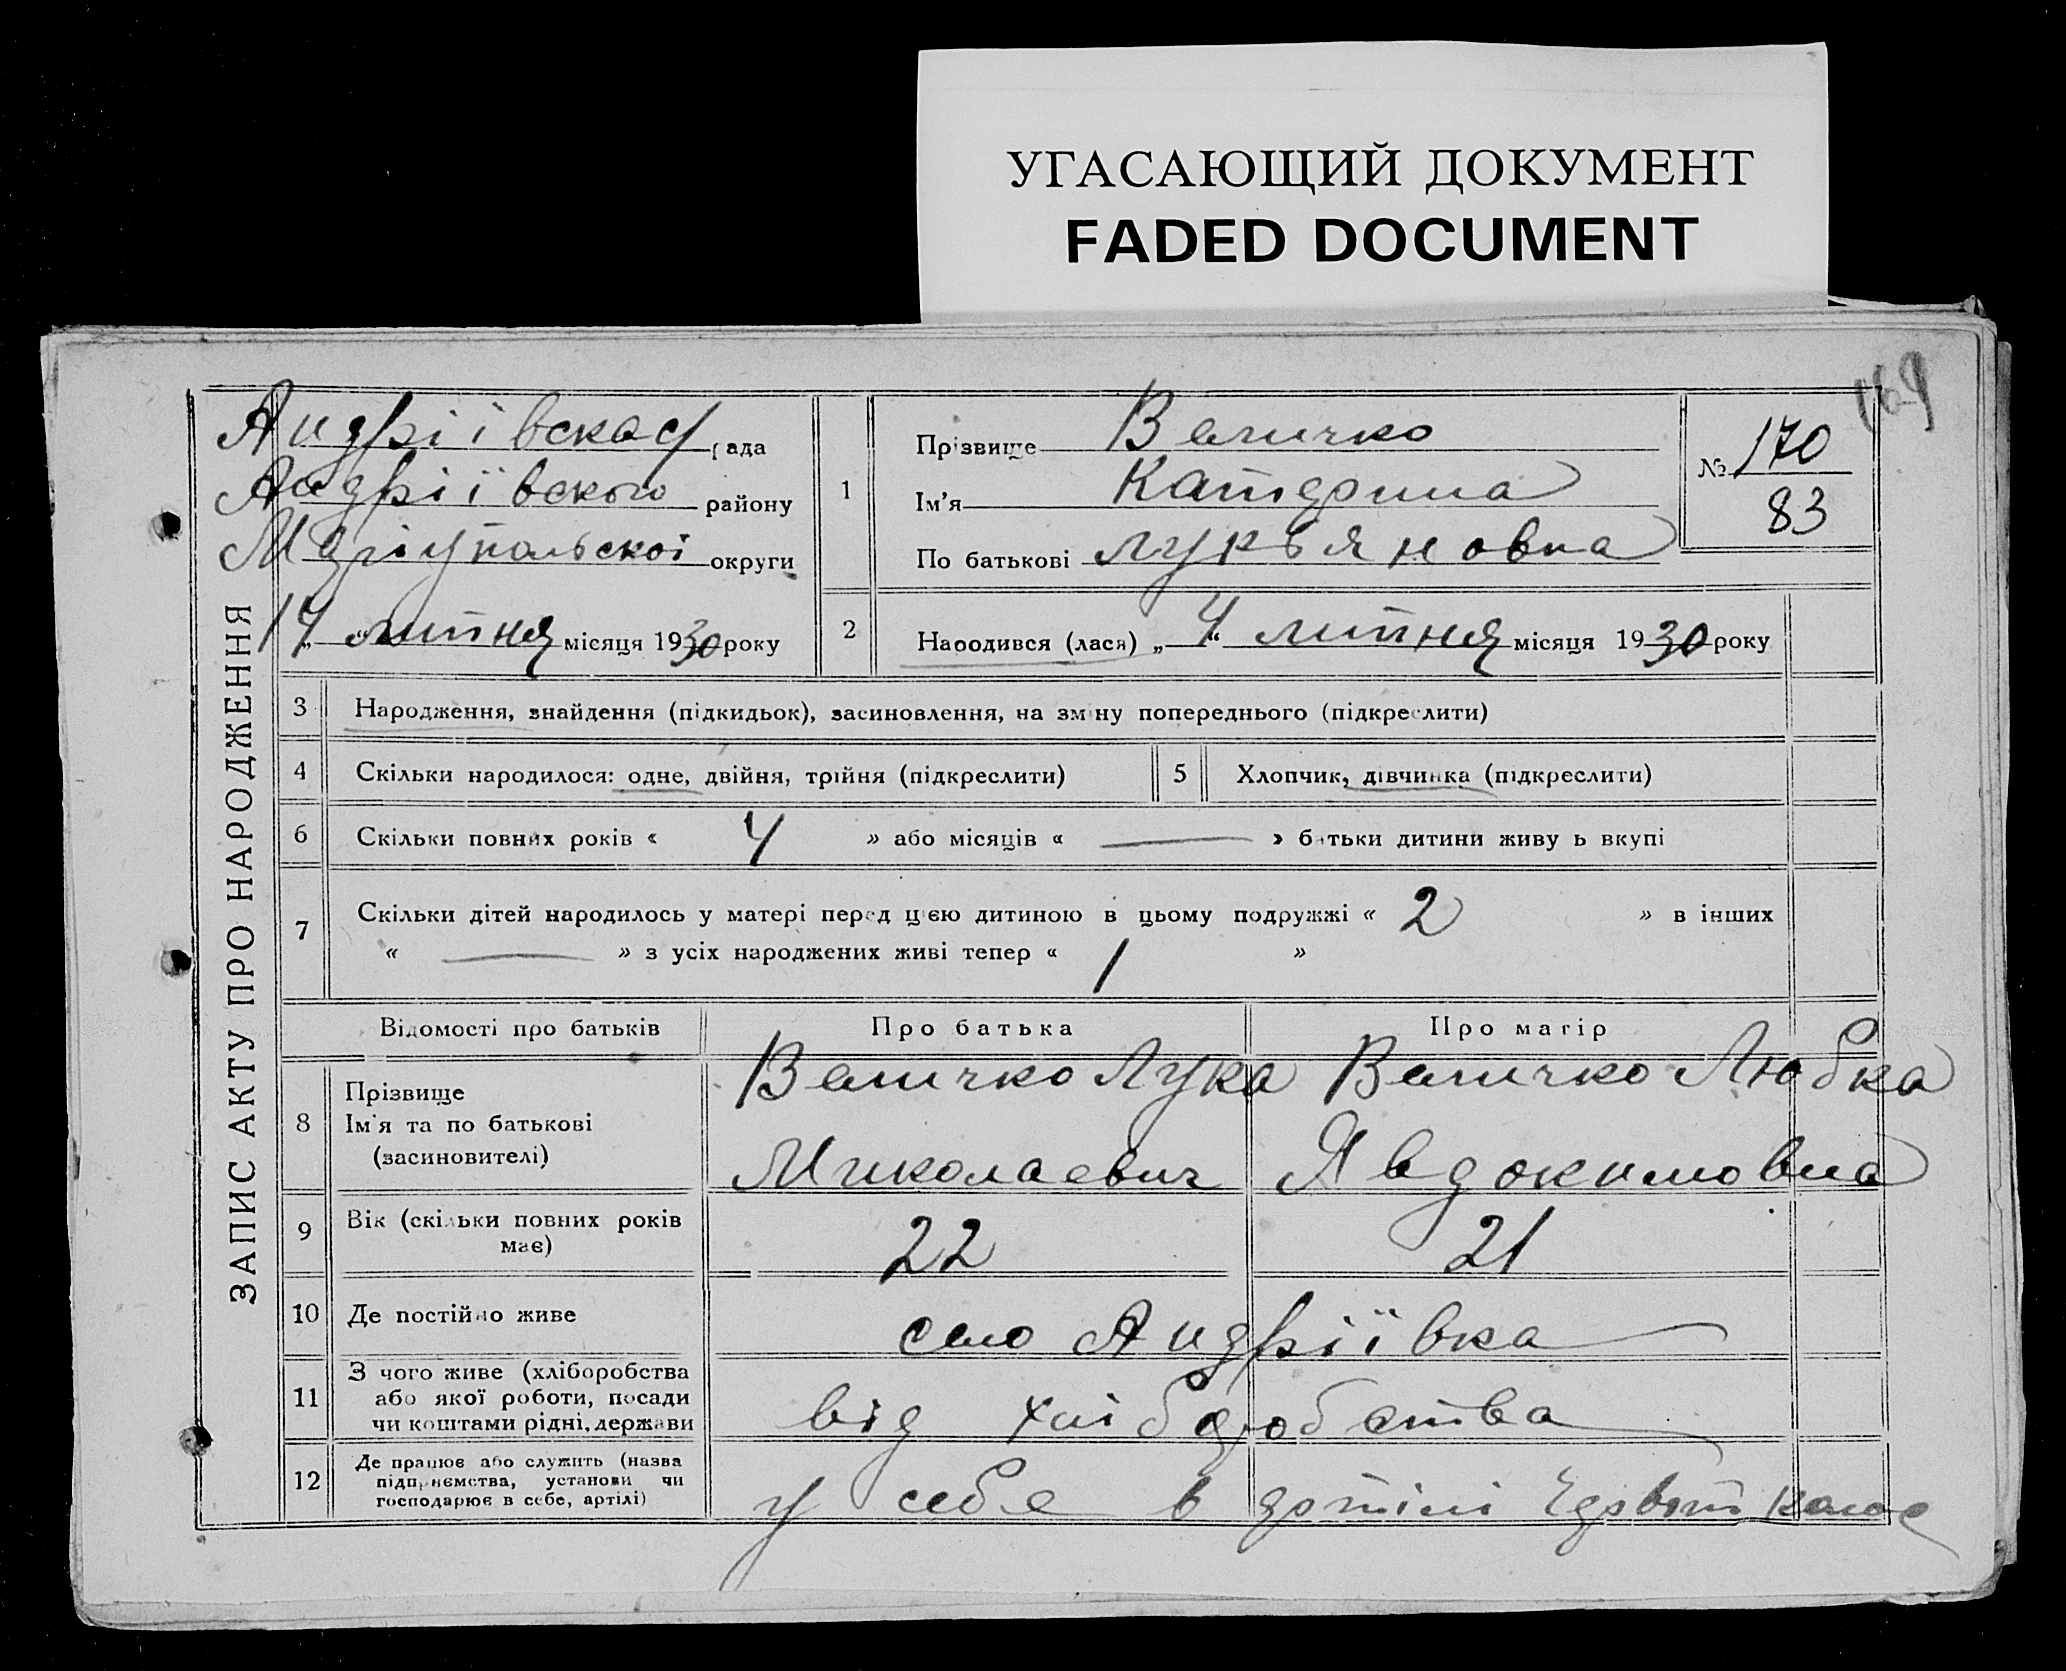 УГАСАЮЩИЙ ДОКУМЕНТ
FADED DOCUMENT
169
ЗАПИС АКТУ ПРО НАРОДЖЕННЯ
Андріївська рада
Андріївського району
Маріупольскої округи
14 липня місяця 1930 року
1
Прізвище Величко
Ім'я Катерина
По батькові Лукъяновна
№ 170
83
2
Народився (лася) „ 4 “ липня місяця 1930 року
3 Народження, знайдення (підкидьок), засиновлення, на зміну попереднього (підкреслити)
4 Скільки народилося: одне, двійня, трійня (підкреслити)
5 Хлопчик, дівчинка (підкреслити)
6 Скільки повних років « 4 » або місяців « — » батьки дитини живуть вкупі
7 Скільки дітей народилось у матері перед цією дитиною в цьому подружжі « 2 » в інших
« — » з усіх народжених живі тепер « 1 »
Відомості про батьків Про батька Про матір
8 Прізвище
Ім'я та по батькові
(засиновителі)
Величко Лука
Миколаевич
Величко Любка
Явдокимовна
9 Вік (скільки повних років
має)
22 21
10 Де постійно живе село Андріївка
11 З чого живе (хліборобства
або якої роботи, посади
чи коштами рідні, держави
від хліборобства
12 Де працює або служить (назва
підприємства, установи чи
господарює в себе, артілі)
у себе в артілі колос